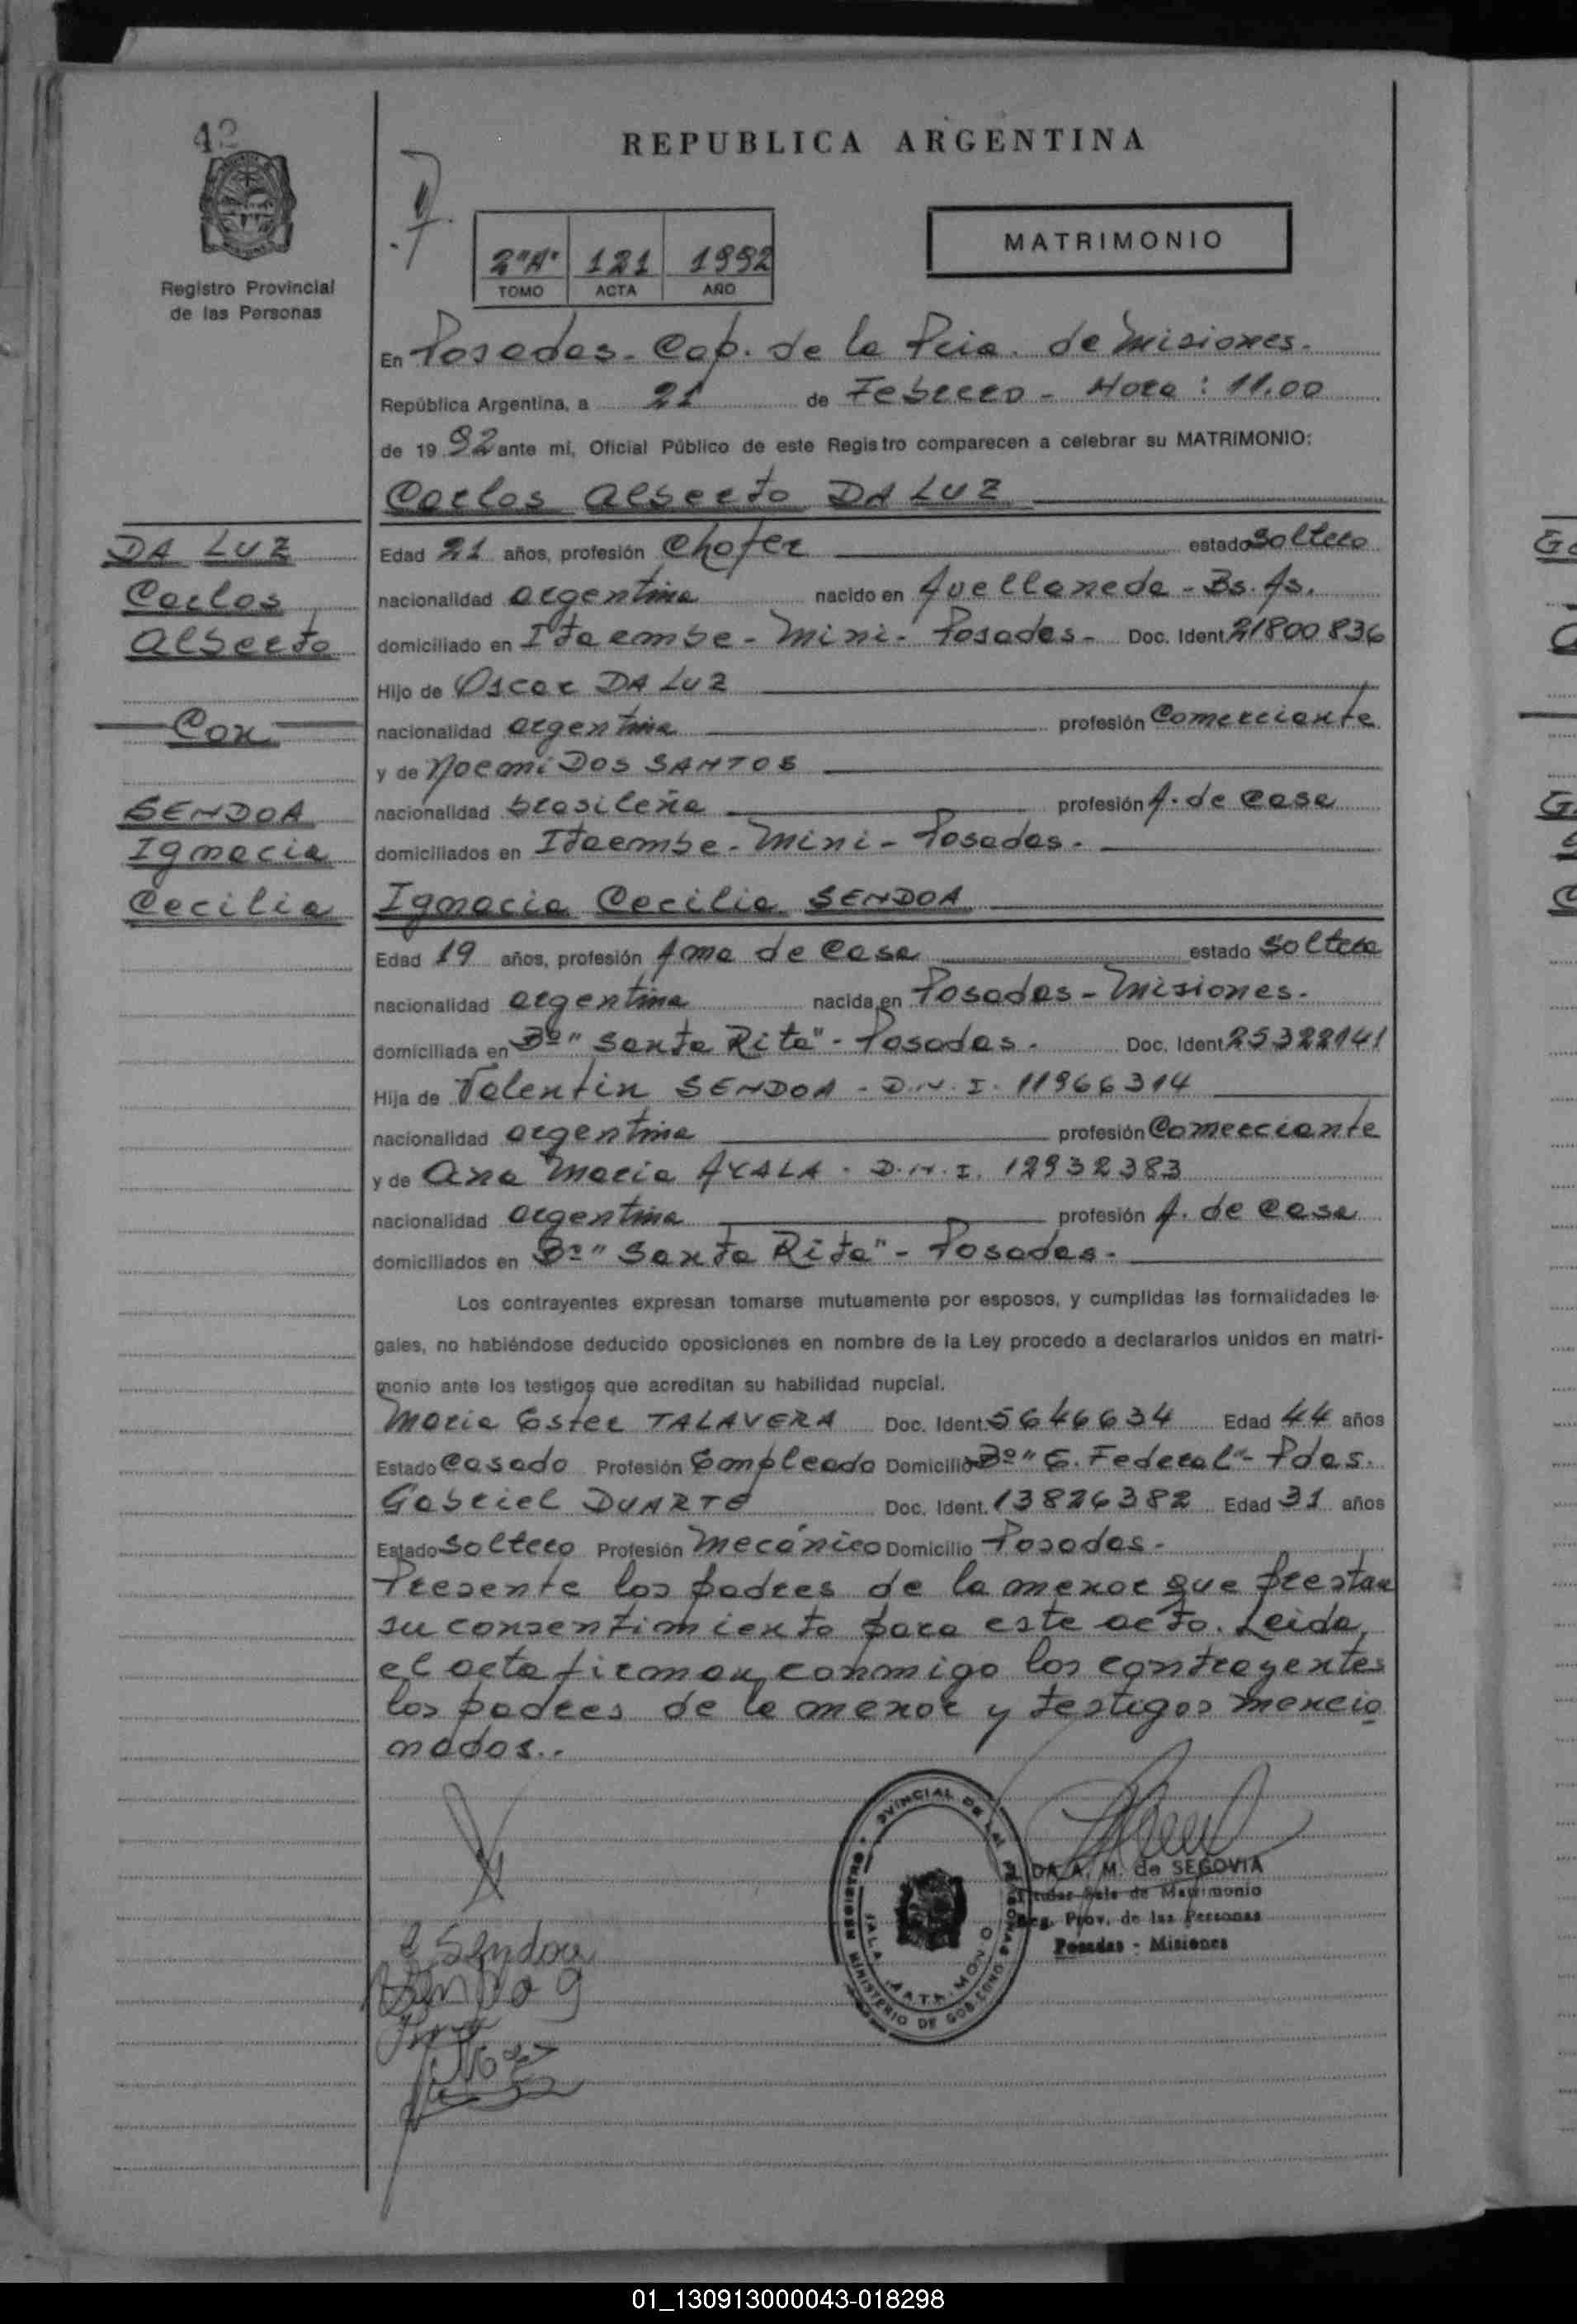 42
REPUBLICA ARGENTINA
Registro Provincial
de las Personas
2"A" 121 1992
TOMO ACTA AÑO
MATRIMONIO
En Posadas - Cap. de la Pcia. de Misiones.
República Argentina, a 21 de Febrero - Hora: 11.00
de 1992 ante mi, Oficial Público de este Registro comparecen a celebrar su MATRIMONIO:
Carlos Alberto DA LUZ
DA LUZ
Carlos
Alberto
Con
SENDOA
Ignacia
Cecilia
Edad 21 años, profesión Chofer estado Soltero
nacionalidad argentina nacido en Avellaneda - Bs. As.
domiciliado en Itaembe - Mini - Posadas - Doc. Ident. 21800836
Hijo de Oscar DA LUZ
nacionalidad argentina profesión Comerciante
y de Noemi DOS SANTOS
nacionalidad brasileña profesión A. de casa
domiciliados en Itaembe - Mini - Posadas.
Ignacia Cecilia SENDOA
Edad 19 años, profesión Ama de Casa estado Soltera
nacionalidad argentina nacida en Posadas - Misiones.
domiciliada en Bº "Santa Rita" - Posadas. Doc. Ident. 25322141
Hija de Valentin SENDOA - D.N.I. 11966314
nacionalidad argentina profesión Comerciante
y de Ana Maria AYALA - D.N.I. 12932383
nacionalidad argentina profesión A. de casa
domiciliados en Bº "Santa Rita" - Posadas.
Los contrayentes expresan tomarse mutuamente por esposos, y cumplidas las formalidades le-
gales, no habiéndose deducido oposiciones en nombre de la Ley procedo a declararlos unidos en matri-
monio ante los testigos que acreditan su habilidad nupcial.
Maria Ester TALAVERA Doc. Ident. 5646634 Edad 44 años
Estado Casada Profesión Empleada Domicilio Bº "E. Federal" - Pdas.
Gabriel DUARTE Doc. Ident. 13826382 Edad 31 años
Estado Soltero Profesión Mecánico Domicilio Posadas.
Presente los padres de la menor que prestan
su consentimiento para este acto. Leida
el acta firman conmigo los contrayentes
los padres de la menor y testigos mencio
nados..
C Sendoa
REGISTRO PROVINCIAL DE LAS PERSONAS
MINISTERIO DE GOBIERNO
A. M. de SEGOVIA
Titular Sala de Matrimonio
Reg. Prov. de las Personas
Posadas - Misiones
01_130913000043-018298